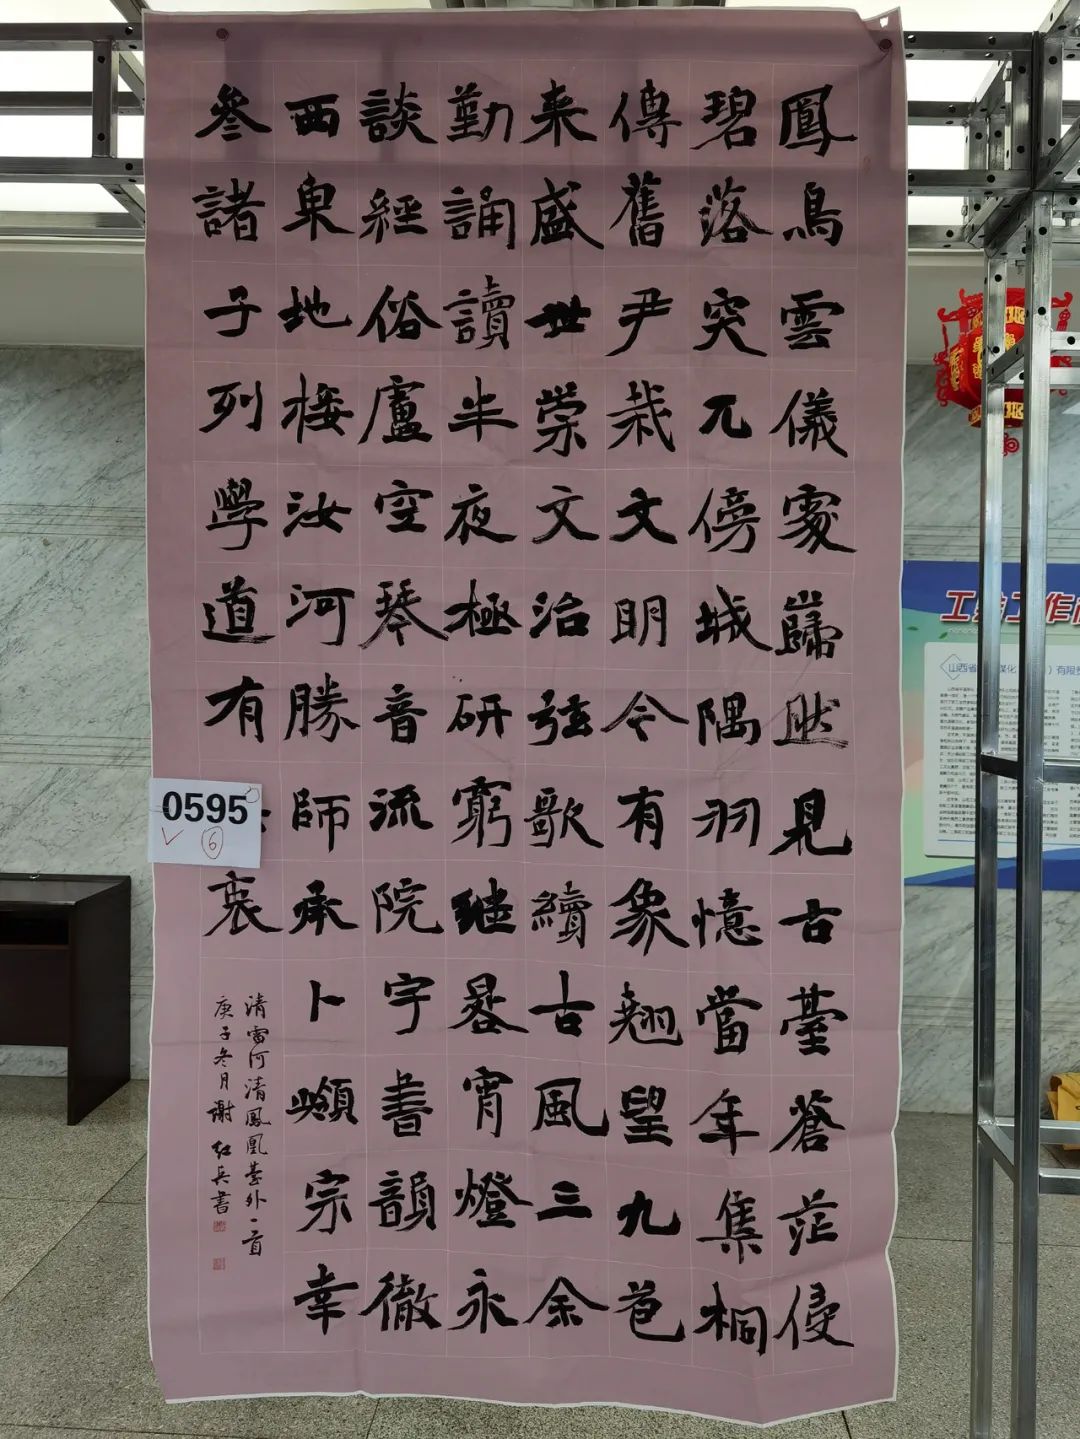 鳳鳥雲儀家巋然見古臺蒼茫侵
碧落突兀傍城隅羽憶當年集桐
傳舊尹栽文明今有象翹望九苞
来盛世崇文治弦歌續古風三余
勤誦讀半夜極研窮继晷宵燈永
談經俗盧空琴音流院宇書韻徹
西東地接汝河勝師承卜頫宗幸
參諸子列學道有衷
清雷河清鳳凰臺外一首
庚子冬月謝红兵書
0595
6
工会工作